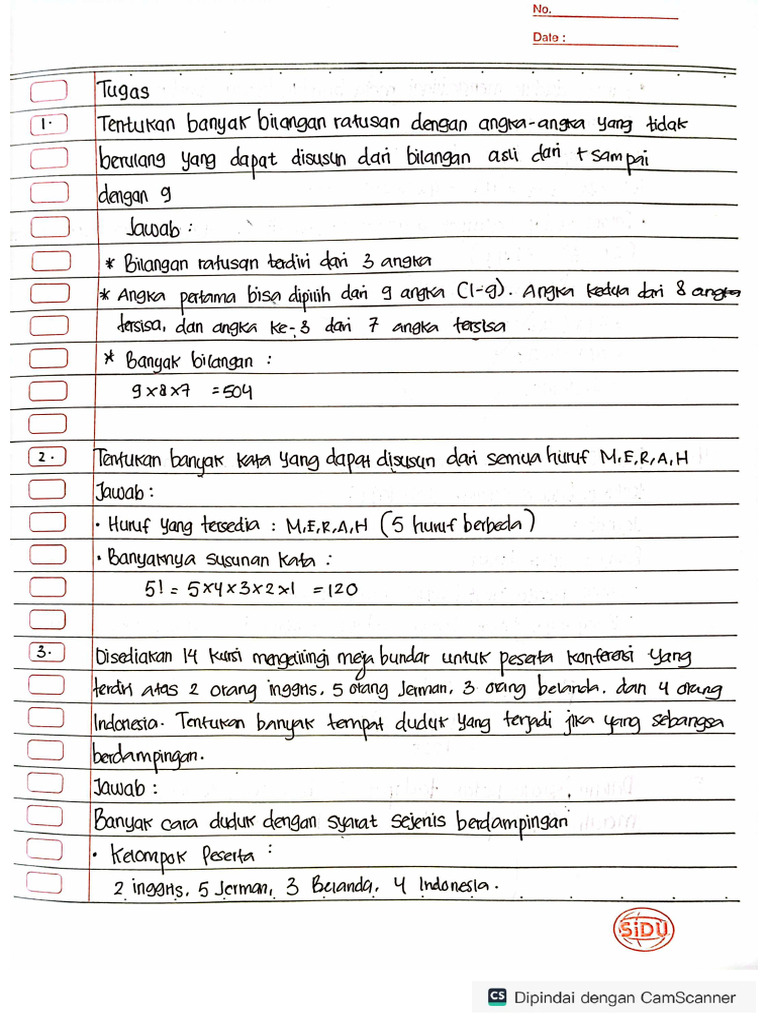 No.
Date :
Tugas
1. Tentukan banyak bilangan ratusan dengan angka-angka yang tidak
berulang yang dapat disusun dari bilangan asli dari 1 sampai
dengan 9
Jawab :
* Bilangan ratusan terdiri dari 3 angka
* Angka pertama bisa dipilih dari 9 angka (1-9). Angka kedua dari 8 angka
tersisa, dan angka ke-3 dari 7 angka tersisa
* Banyak bilangan :
9 x 8 x 7 = 504
2. Tentukan banyak kata yang dapat disusun dari semua huruf M,E,R,A,H
Jawab :
• Huruf yang tersedia : M,E,R,A,H (5 huruf berbeda)
• Banyaknya susunan kata :
5! = 5x4x3x2x1 = 120
3. Disediakan 14 kursi mengelilingi meja bundar untuk peserta konferensi yang
terdiri atas 2 orang inggris, 5 orang Jerman, 3 orang belanda, dan 4 orang
Indonesia. Tentukan banyak tempat duduk yang terjadi jika yang sebangsa
berdampingan.
Jawab :
Banyak cara duduk dengan syarat sejenis berdampingan
• Kelompok Peserta :
2 inggris, 5 Jerman, 3 Belanda, 4 Indonesia.
SiDU
CS Dipindai dengan CamScanner